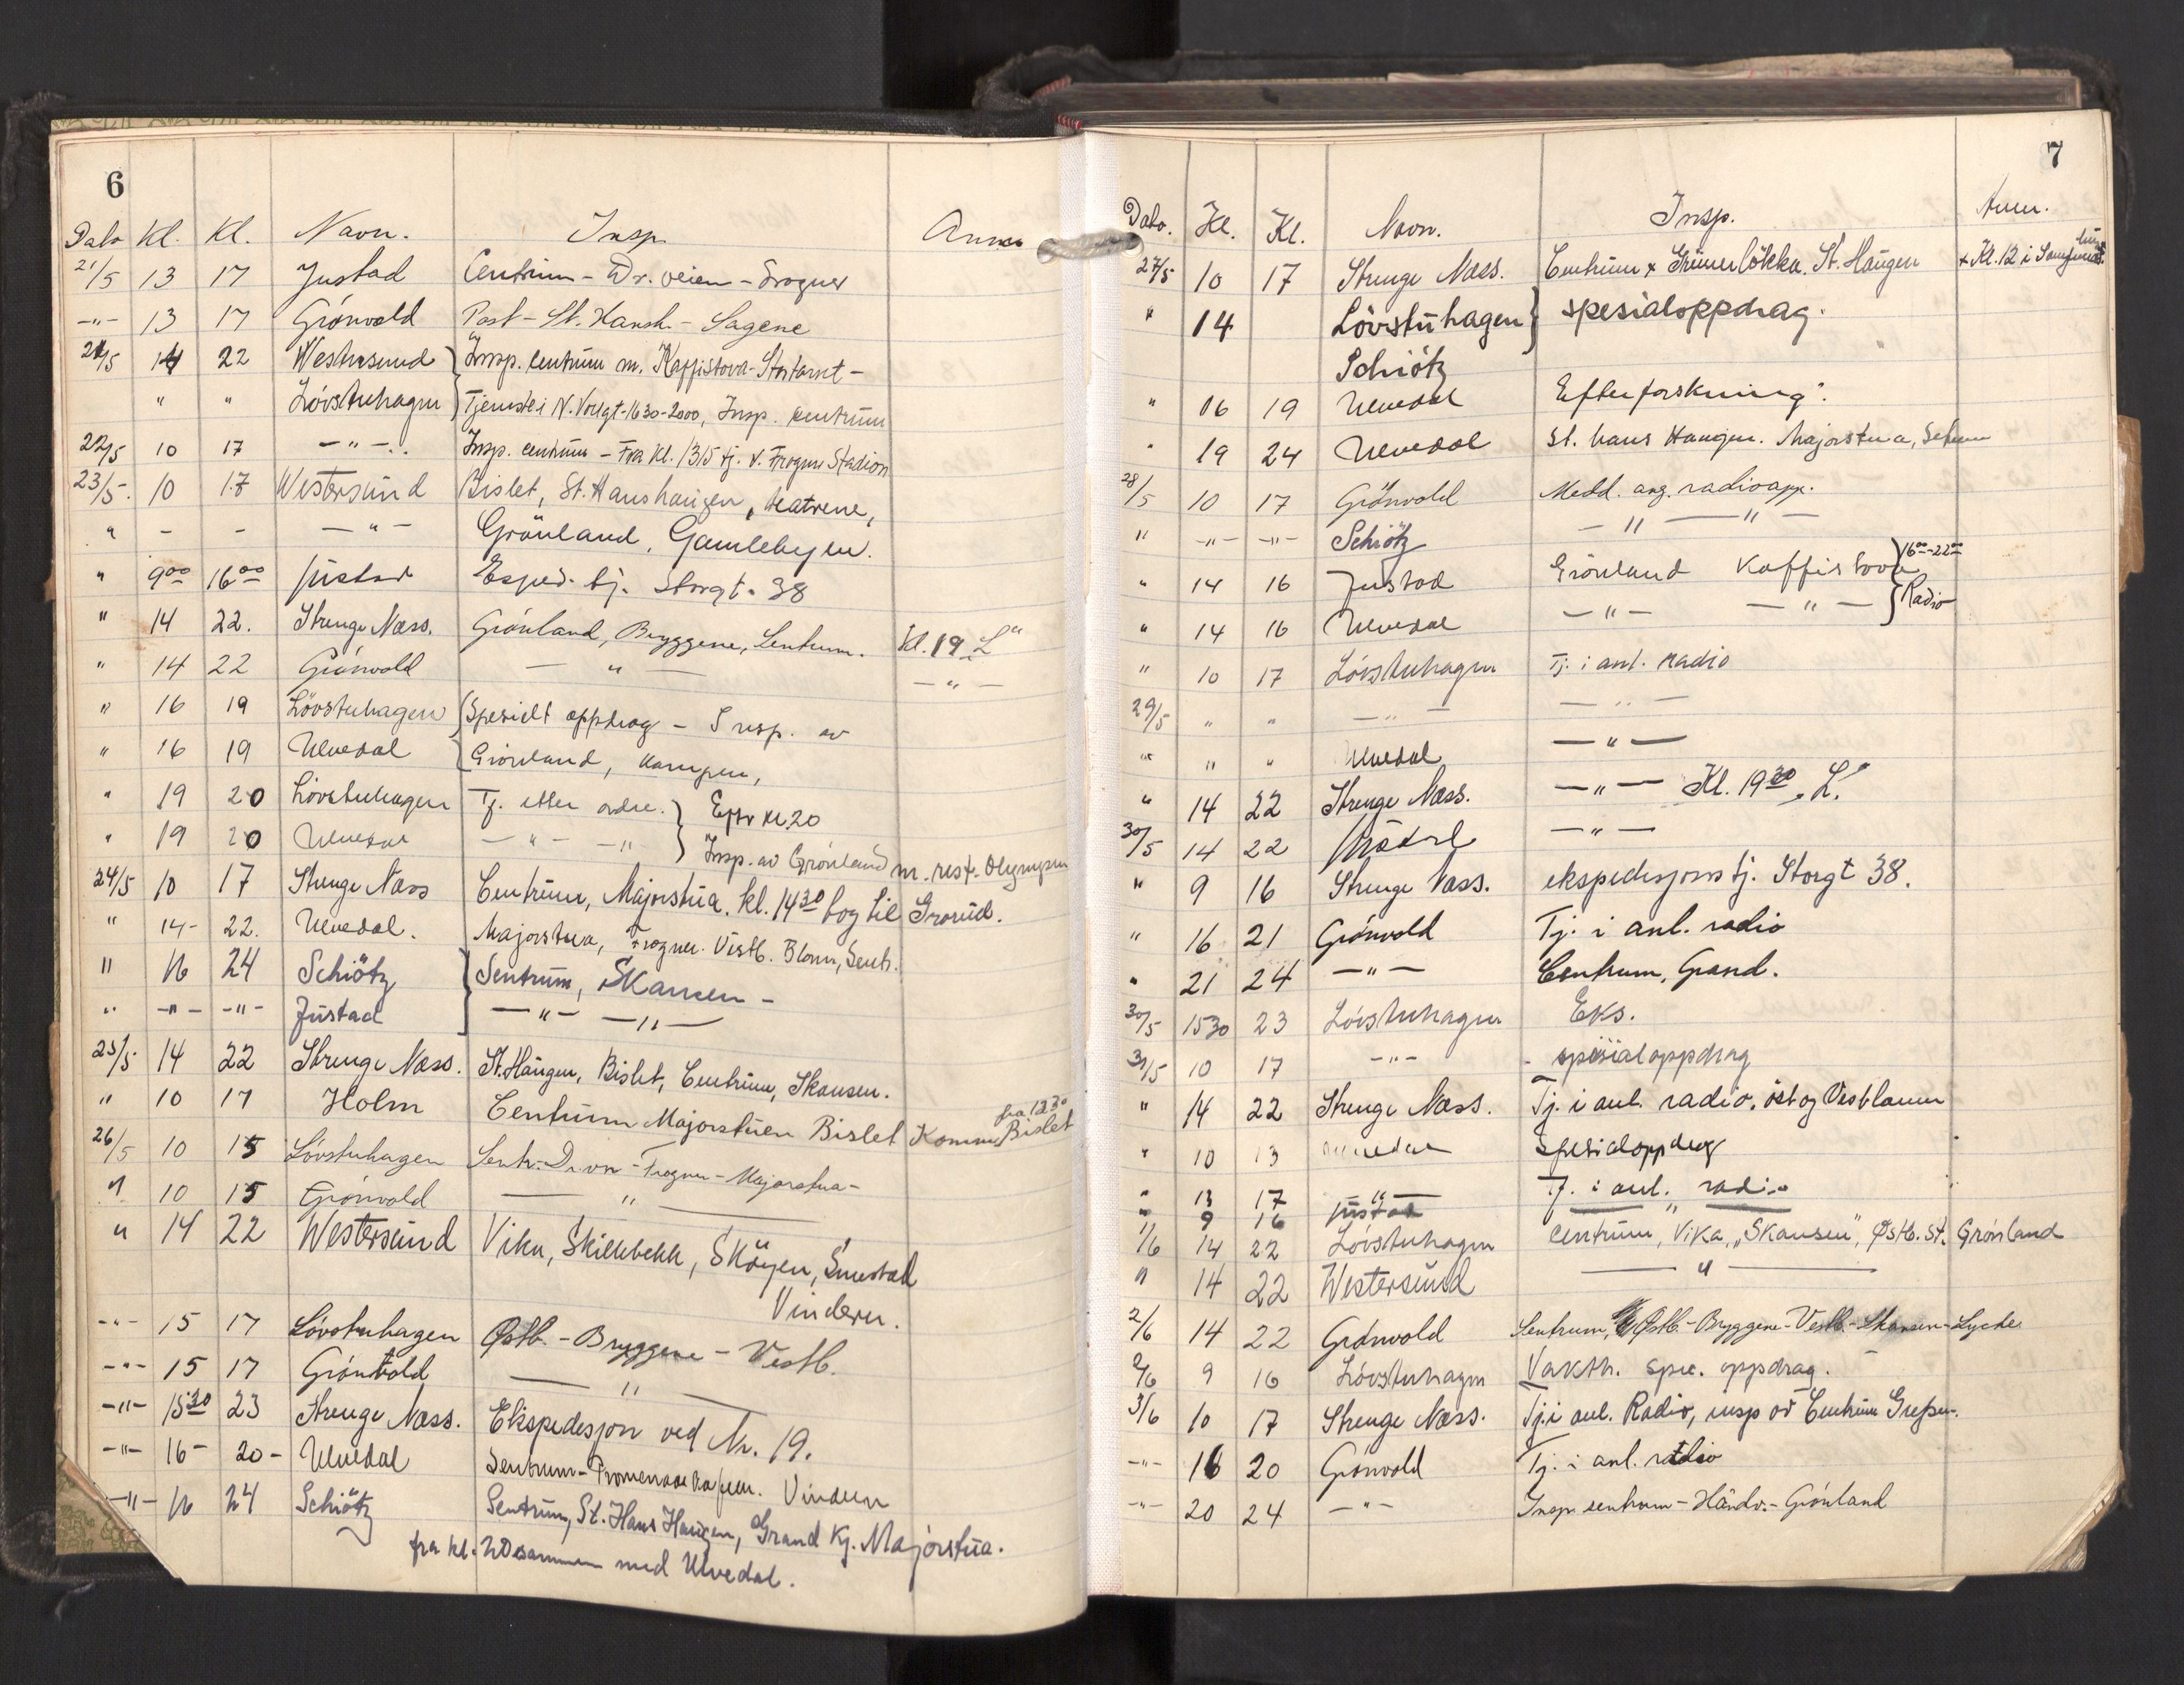 6
Dato Kl. Kl. Navn. Insp. Anm
21/5 13 17 Justad Centrum - Dr. veien - Frogner
-"- 13 17 Grönvold Post - St. Hansh. - Sagene
21/5 14 22 Westersund } Innsp. Centrum m. Kaffistova - Stortorvet -
" " Lövstuhagen } Tjeneste i N. Voldgt - 1630-2000, Insp. centrum
22/5 10 17 -"- Insp. centrum - Fra kl. 1315 tj. v. Frogner Stadion
23/5. 10 17 Westersund Bislet, St. Hanshaugen, teatrene,
" - - -"- Grönland, Gamlebyen.
" 9 00 16 00 Justad Exped. tj. Storgt. 38
" 14 22. Strenge Næss. Grönland, Bryggene, Sentrum. Kl. 19 "L"
" 14 22 Grönvold -"- -"-
" 16 19 Lövstuhagen { Spesielt oppdrag - Insp. av
" 16 19 Ulvedal { Grönland, Kampen,
" 19 20 Lövstuhagen Tj. etter ordre. } Efter kl. 20
" 19 20 Ulvedal -"- -"- } Insp. av Grönland m. rest. Olympen
24/5 10 17 Strenge Næss Centrum, Majorstua. kl. 14 30 tog til Grorud.
" 14- 22. Ulvedal. Majorstua, Frogner. Vestb. Blom, Sentr.
" 16 24 Schiötz } Sentrum, Skansen -
" -"- -"- Justad } -"- -"-
25/5 14 22 Strenge Næss. St. Haugen, Bislet, Centrum, Skansen.
" 10 17 Holm Centrum Majorstuen Bislet Komm. Bislet fra 1230
26/5 10 15 Lövstuhagen Sentr. - Dr.vn - Frogner - Majorstua -
" 10 15 Grönvold "
" 14 22 Westersund Vika, Skillebekk, Sköyen, Smestad
Vinderen.
-"- 15 17 Lövstuhagen Östb. - Bryggene - Vestb.
-"- 15 17 Grönvold "
-"- 15 30 23 Strenge Næss. Ekspedisjon ved Nr. 19.
-"- 16- 20- Ulvedal Sentrum - Promenade kafeen. Vinderen
-"- 16 24 Schiötz Sentrum, St. Hans Haugen, Grand Kj. Majorstua.
fra kl. 20 sammen med Ulvedal.
7
Dato. Kl. Kl. Navn. Insp. Anm.
27/5 10 17 Strenge Næss. Centrum x Grünerlökka. St. Haugen x Kl. 12 i
" 14 Lövstuhagen } spesialoppdrag.
Schiötz
" 16 19 Ulvedal Efterforskning.
" 19 24 Ulvedal St. Hans Haugen. Majorstua,
28/5 10 17 Grönvold Medd. ang. radioapp.
" -"- -"- Schiötz -"- -"-
" 14 16 Justad Grönland Kaffistova } 16 00 - 22 00
" 14 16 Ulvedal -"- -"- } Radio
" 10 17 Lövstuhagen Tj. i anl. radio
29/5 " " -"- -"-
" " " Ulvedal -"-
" 14 22 Strenge Næss. -"- Kl. 19 30 "L"
30/5 14 22 -"-
" 9 16 Strenge Næss. ekspedisjonstj. Storgt 38.
" 16 21 Grönvold Tj. i anl. radio
" 21 24 -"- Centrum, Grand.
30/5 1530 23 Lövstuhagen Eks.
31/5 10 17 -"- spesialoppdrag
" 14 22 Strenge Næss. Tj. i anl. radio, öst og Vestbanen
" 10 13 Ulvedal Spesialoppdrag
" 13 17 -"- Tj. i anl. radio
" 9 16 Justad "
1/6 14 22 Lövstuhagen Centrum, Vika, "Skansen", Östb. St. Grönland
" 14 22 Westersund "
2/6 14 22 Grönvold Sentrum, Östb. - Bryggene - Vestb. - Skansen - Lyche
2/6 9 16 Lövstuhagen Vakth. spes. oppdrag.
3/6 10 17 Strenge Næss. Tj. i anl. Radio, insp av Centrum Grefsen.
-"- 16 20 Grönvold Tj. i anl. radio
-"- 20 24 -"- Insp sentrum - Håndv. - Grönland